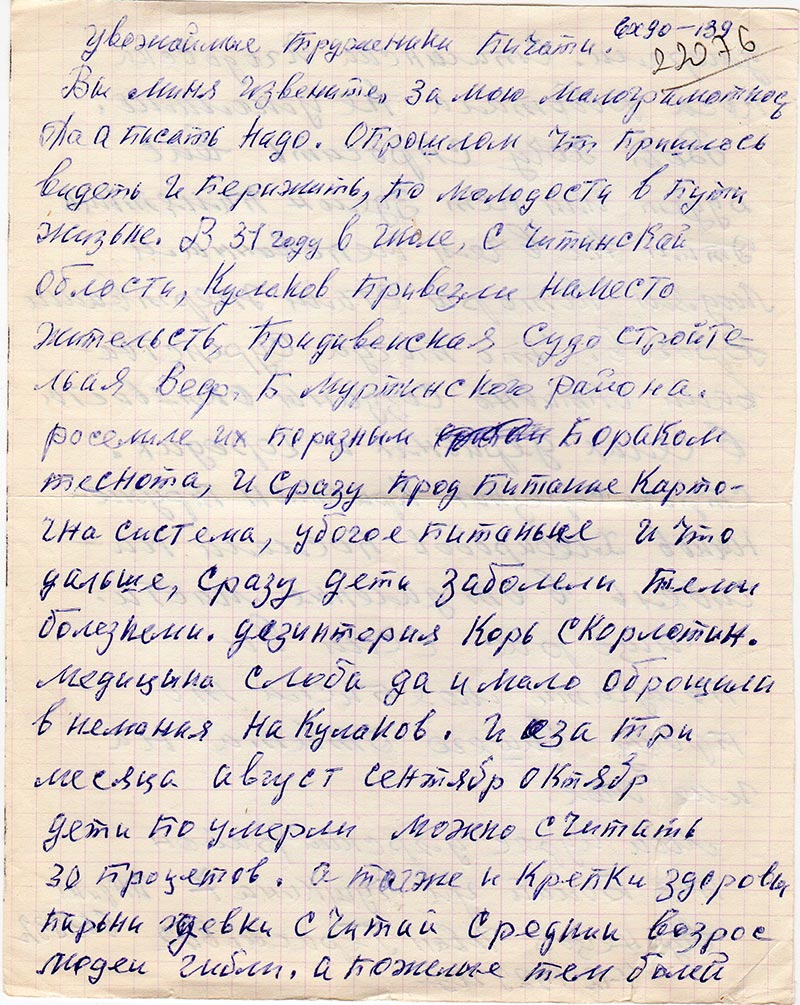 вх90-139
22076
Увожаймые Труженики Пичати.
Вы миня Извените, за мою малограмотнос
Та а писать надо. Опрошлом Что пришлось
видеть И перижить, по молодости в пути
жизьне. В 31 году в Июле, с Читинскай
Области, Кулаков Привезли наместо
жительств, Придивенская Судо стройте-
льая Верф. Б Муртинского района.
роселиле их поразным Бораком
теснота, и сразу прод питание Карто-
чна система, убогое питанье И что
дальше, сразу дети заболели теми
болезнеми. дезинтерия Корь скорлотин.
медицына слоба да и мало оброщили
в неманая на Кулаков. И за три
месяца август сентябр октябр
дети по умерли можно считать
30 процетов. а также и крепки здоровы
парьни девки считай средний возрос
людеи гибли. а пожелые тем болей